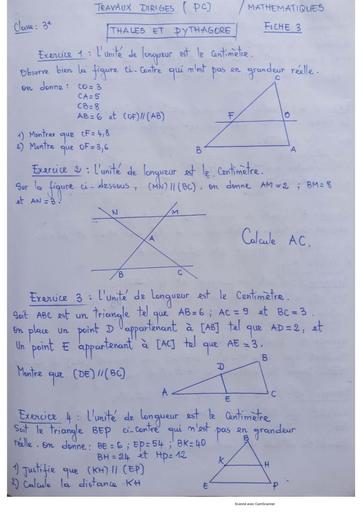 TRAVAUX DIRIGES ( PC) / MATHEMATIQUES
Classe : 3e THALES ET PYTHAGORE FICHE 3
Exercice 1 : L'unité de longueur est le Centimètre.
Observe bien la figure ci-contre qui n'est pas en grandeur réelle.
on donne : CO = 3
CA = 5
CB = 8
AB = 6 et (OF) // (AB)
1) Montrer que CF = 4,8
2) Montre que OF = 3,6
C
F
O
B
A
Exercice 2 : L'unité de longueur est le Centimètre.
Sur la figure ci-dessous, (MN) // (BC). on donne AM = 2 ; BM = 8
et AN = 3.
N
M
A
B
C
Calcule AC.
Exercice 3 : L'unité de longueur est le Centimètre.
Soit ABC est un triangle tel que AB = 6 ; AC = 9 et BC = 3.
on place un point D appartenant à [AB] tel que AD = 2, et
un point E appartenant à [AC] tel que AE = 3.
Montre que (DE) // (BC)
B
D
A
E
C
Exercice 4 : L'unité de longueur est le Centimètre
Soit le triangle BEP ci-contre qui n'est pas en grandeur
réelle. on donne : BE = 6 ; EP = 54 ; BK = 40
BH = 24 et HP = 12
1) Justifie que (KH) // (EP)
2) Calcule la distance KH
B
K
H
E
P
Scanné avec CamScanner